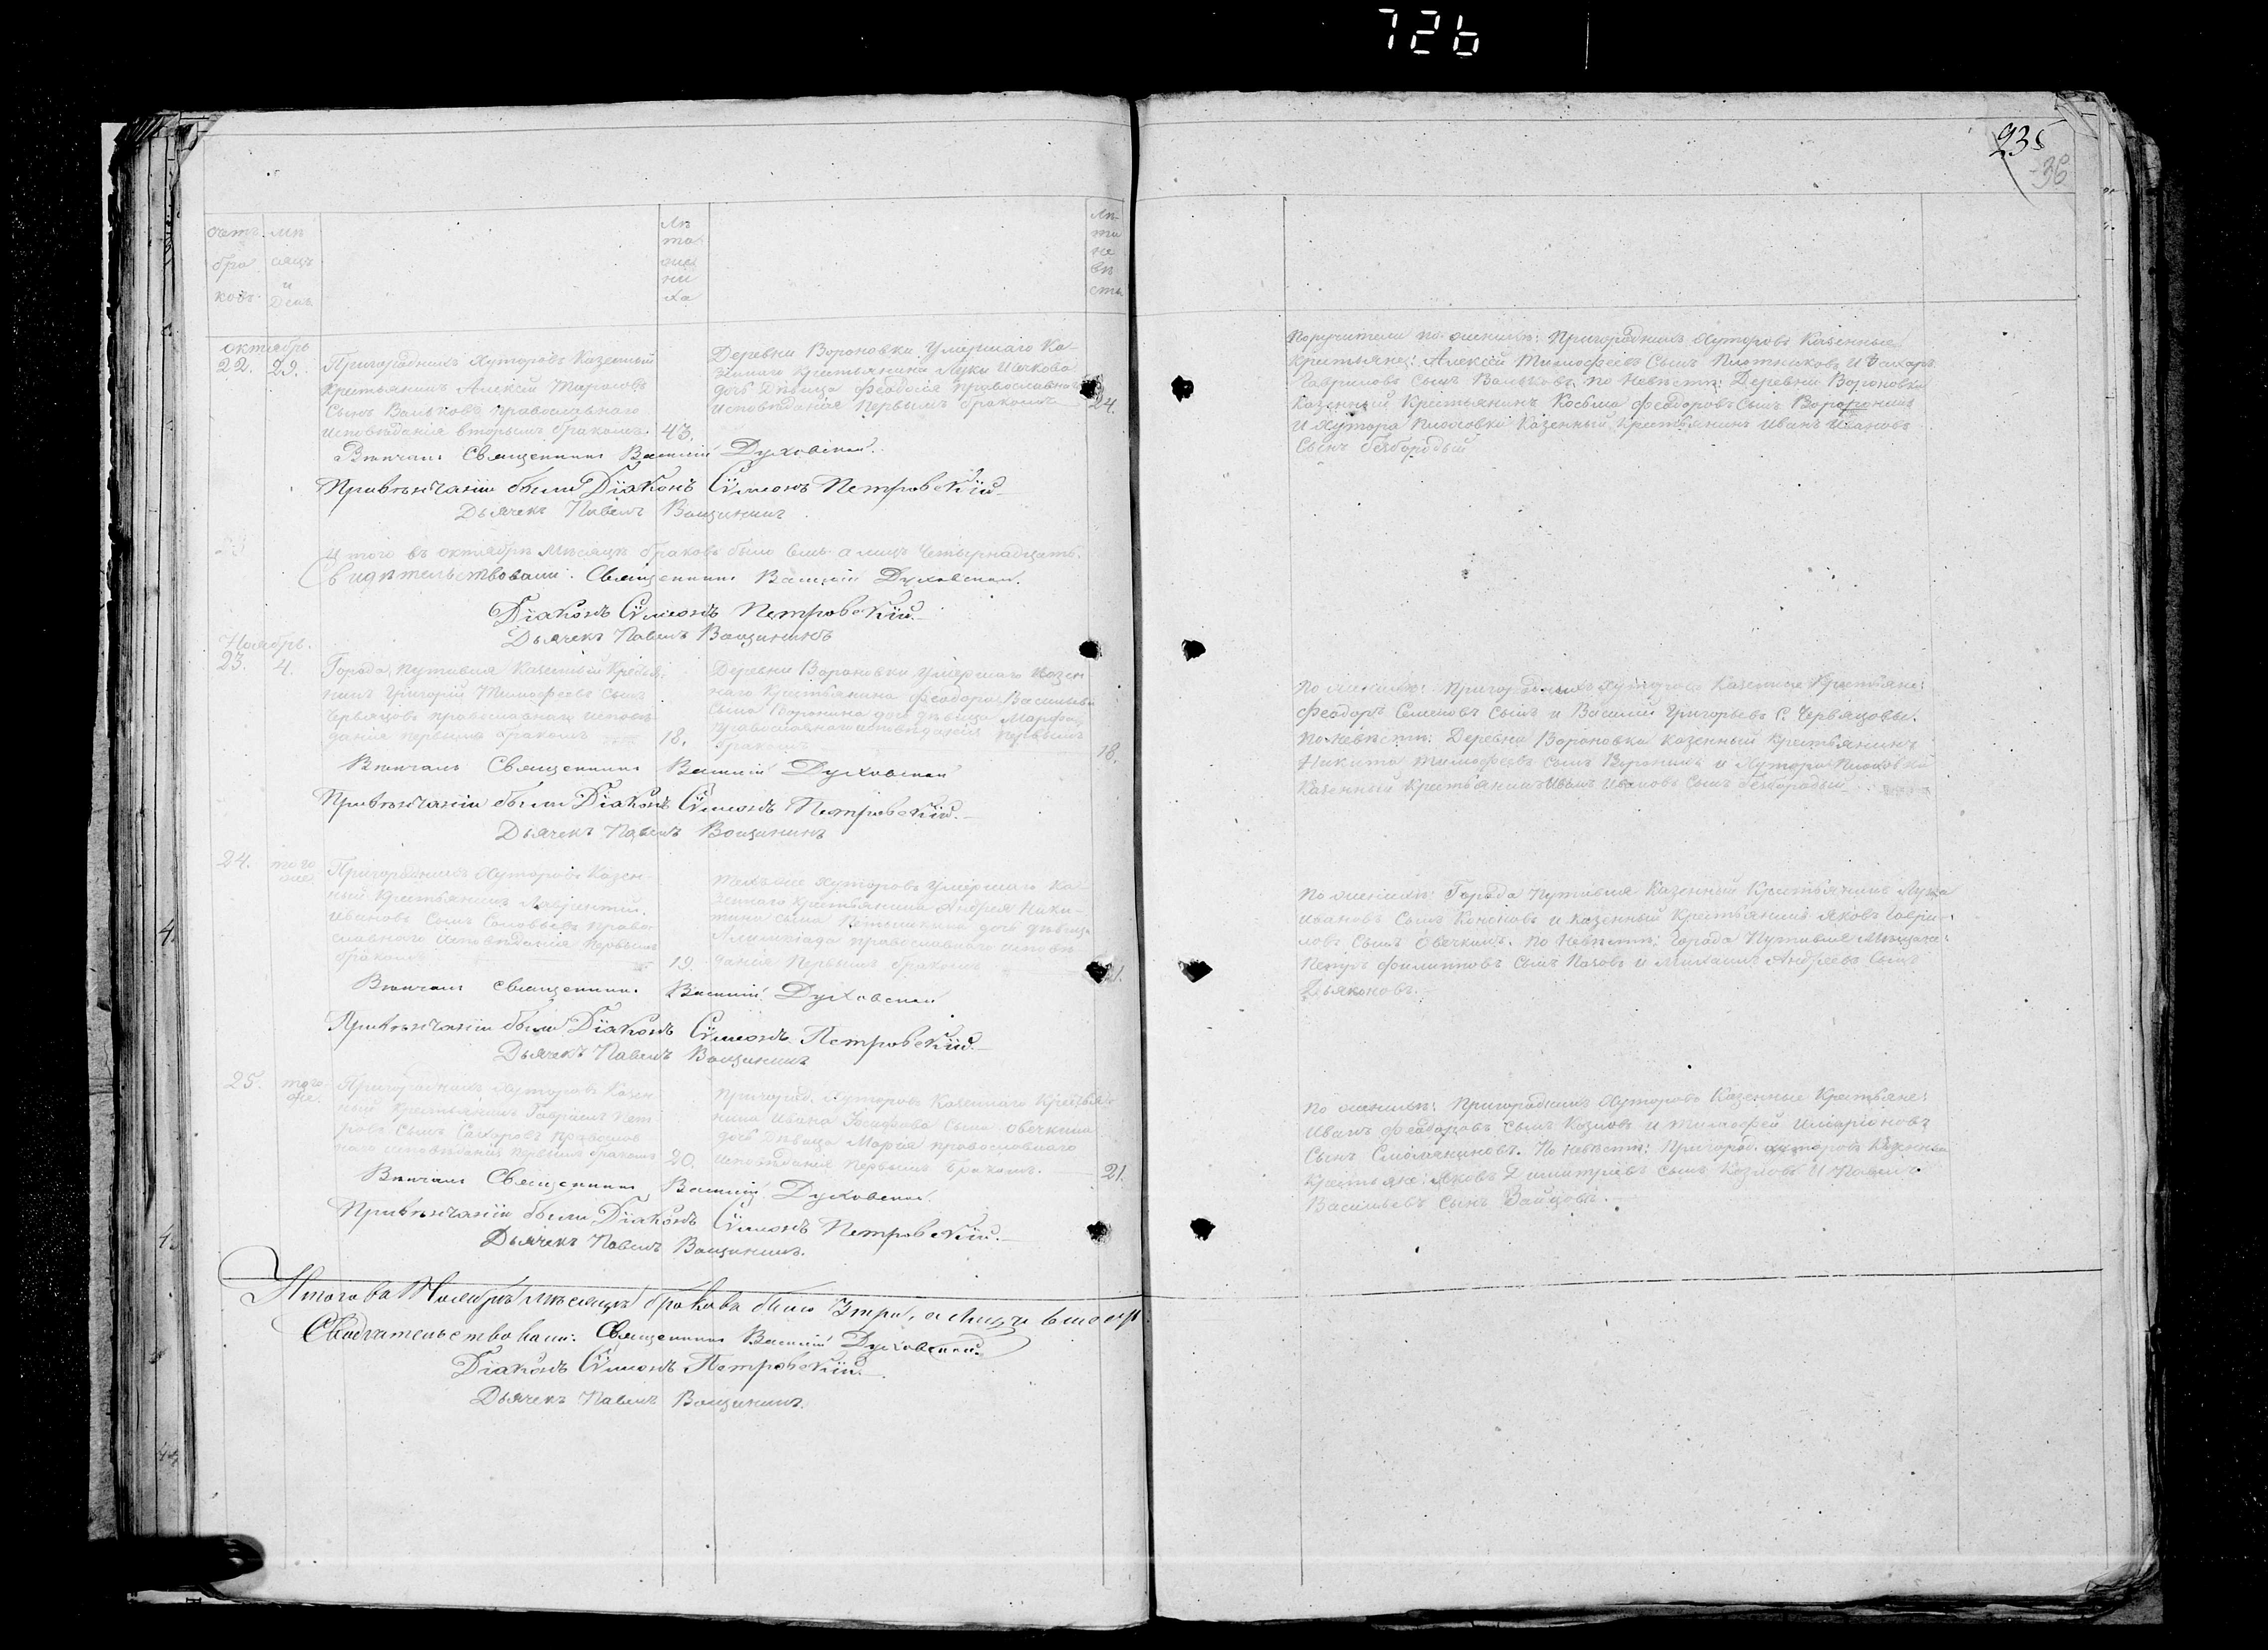 726
235
36
счетъ браковъ
мѣсяцъ и день
лѣта жениха
лѣта невѣсты
октябрь
22. 29.
Пригородныхъ Хуторовъ Казенный
Крестьянинъ Алексѣй Тарасовъ
Сынъ Вольковъ православнаго
исповѣданія вторымъ бракомъ. 43.
Деревни Вороновки Умершаго Ка-
зеннаго Крестьянина Луки
дочь Дѣвица Феодосія православнаго
исповѣданія Первымъ бракомъ 24.
Вѣнчалъ Священникъ Василій Духовской.
При вѣнчаніи были Діаконъ Сѵмеонъ Петровскій
Дьячекъ Павелъ Вощининъ
Итого въ октябрѣ мѣсяцѣ браковъ было семь а лицъ Четырнадцать.
Свидѣтельствовали: Священникъ Василій Духовской.
Діаконъ Сѵмеонъ Петровскій
Дьячекъ Павелъ Вощининъ
Ноябрь.
23. 4.
Города Путивля Казенный Кресть-
нинъ Григорій Тимофеевъ Сынъ
Червяцовъ православнаго исповѣ-
данія первымъ бракомъ 18.
Деревни Вороновки Умершаго Казен
наго Крестьянина Феодора Васильева
Сына Воронина дочь дѣвица Марфа
православнаго исповѣданія первымъ
бракомъ 18.
Вѣнчалъ Священникъ Василій Духовской
При вѣнчаніи были Діаконъ Сѵмеонъ Петровскій.
Дьячекъ Павелъ Вощининъ
24. того же.
Пригородныхъ Хуторовъ Казен-
ный Крестьянинъ Лаврентій
Ивановъ Сынъ Соловьевъ право-
славнаго исповѣданія первымъ
бракомъ 19.
Тѣхъ же Хуторовъ Умершаго Ка-
зеннаго Крестьянина Андрея Ники-
тина сына дочь дѣвица
Алимпіада православнаго исповѣ
данія Первымъ бракомъ
Вѣнчалъ священникъ Василій Духовской
При вѣнчаніи были Діаконъ Сѵмеонъ Петровскій.
Дьячекъ Павелъ Вощининъ
25. того же.
Пригородныхъ Хуторовъ Казен-
ный Крестьянинъ Гавріилъ Пет-
ровъ Сынъ Сахаровъ Православ-
наго исповѣданія первымъ бракомъ 20.
Пригород. Хуторовъ Казеннаго Крестья-
нина Ивана Іосифова Сына Овечкина
дочь Дѣвица Марія православнаго
исповѣданія первымъ бракомъ. 21.
Вѣнчалъ Священникъ Василій Духовской.
При вѣнчаніи были Діаконъ Сѵмеонъ Петровскій.
Дьячекъ Павелъ Вощининъ.
Итого въ Ноябрѣ мѣсяцѣ браковъ было 3 три, а лицъ
Свидѣтельствовали: Священникъ Василій Духовской
Діаконъ Сѵмеонъ Петровскій.
Дьячекъ Павелъ Вощининъ.
Поручители по женихѣ: Пригородныхъ Хуторовъ Казенные
Крестьяне: Алексѣй Тимофеевъ Сынъ Плотниковъ И Захаръ
Гавриловъ Сынъ Вольковъ. по Невѣстѣ: Деревни Вороновки
Казенный Крестьянинъ Косьма Феодоровъ Сынъ Воронинъ
И Хутора Казенный Крестьянинъ Иванъ Ивановъ
Сынъ Безбородый
По женихѣ: Пригородныхъ Хуторовъ Казенные Крестьяне:
Феодоръ Семеновъ Сынъ и Василій Григорьевъ С. Червяцовы.
По Невѣстѣ: Деревни Вороновки Казенный Крестьянинъ
Никита Тимофеевъ Сынъ Воронинъ и Хутора
Казенный Крестьянинъ Иванъ Ивановъ Сынъ Безбородый
По женихѣ: Города Путивля Казенный Крестьянинъ Лука
Ивановъ Сынъ Кононовъ и Казенный Крестьянинъ Яковъ Гаври-
ловъ Сынъ Овечкинъ. По Невѣстѣ: Города Путивля Мѣщане:
Петръ Филипповъ Сынъ и Михаилъ Андреевъ Сынъ
Дьяконовъ.
По женихѣ: Пригородныхъ Хуторовъ Казенные Крестьяне:
Иванъ Феодоровъ Сынъ Козловъ и Тимофей Иларіоновъ
Сынъ Смольяниновъ. По Невѣстѣ: Пригород. хуторовъ Казенные
Крестьяне: Яковъ Димитріевъ Сынъ Козловъ И Павелъ
Васильевъ Сынъ Зайцовъ.